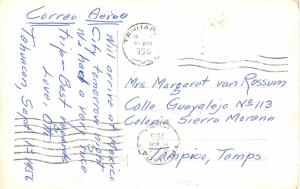 Correo Aereo
Will arrive at Mexico
City tomorrow night
We had a very nice
trip - Best regards
Love,
Tehuacan, Sept 1st 1956
Mrs. Margarot van Rossum
Calle Guayalejo Nº 113
Colonia Sierra Morena
Tampico, Tamps.